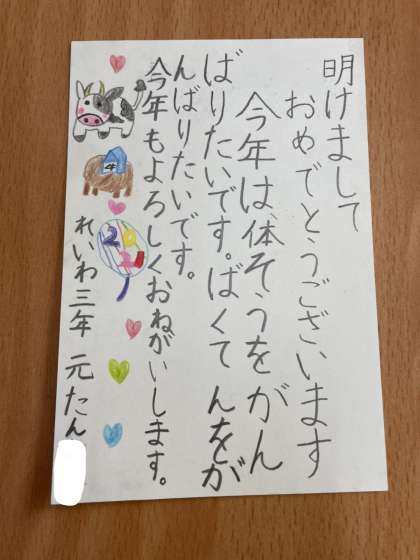 明けまして
おめでとうございます
今年は、体そうをがん
ばりたいです。ばくてんをが
んばりたいです。
今年もよろしくおねがいします。
れいわ三年 元たん
4
2021